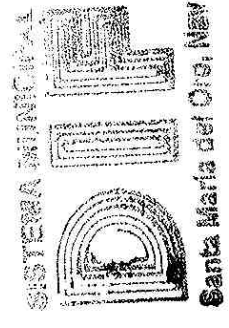 SISTEMA MUNICIPAL
DIF
Santa María del Oro, Nay